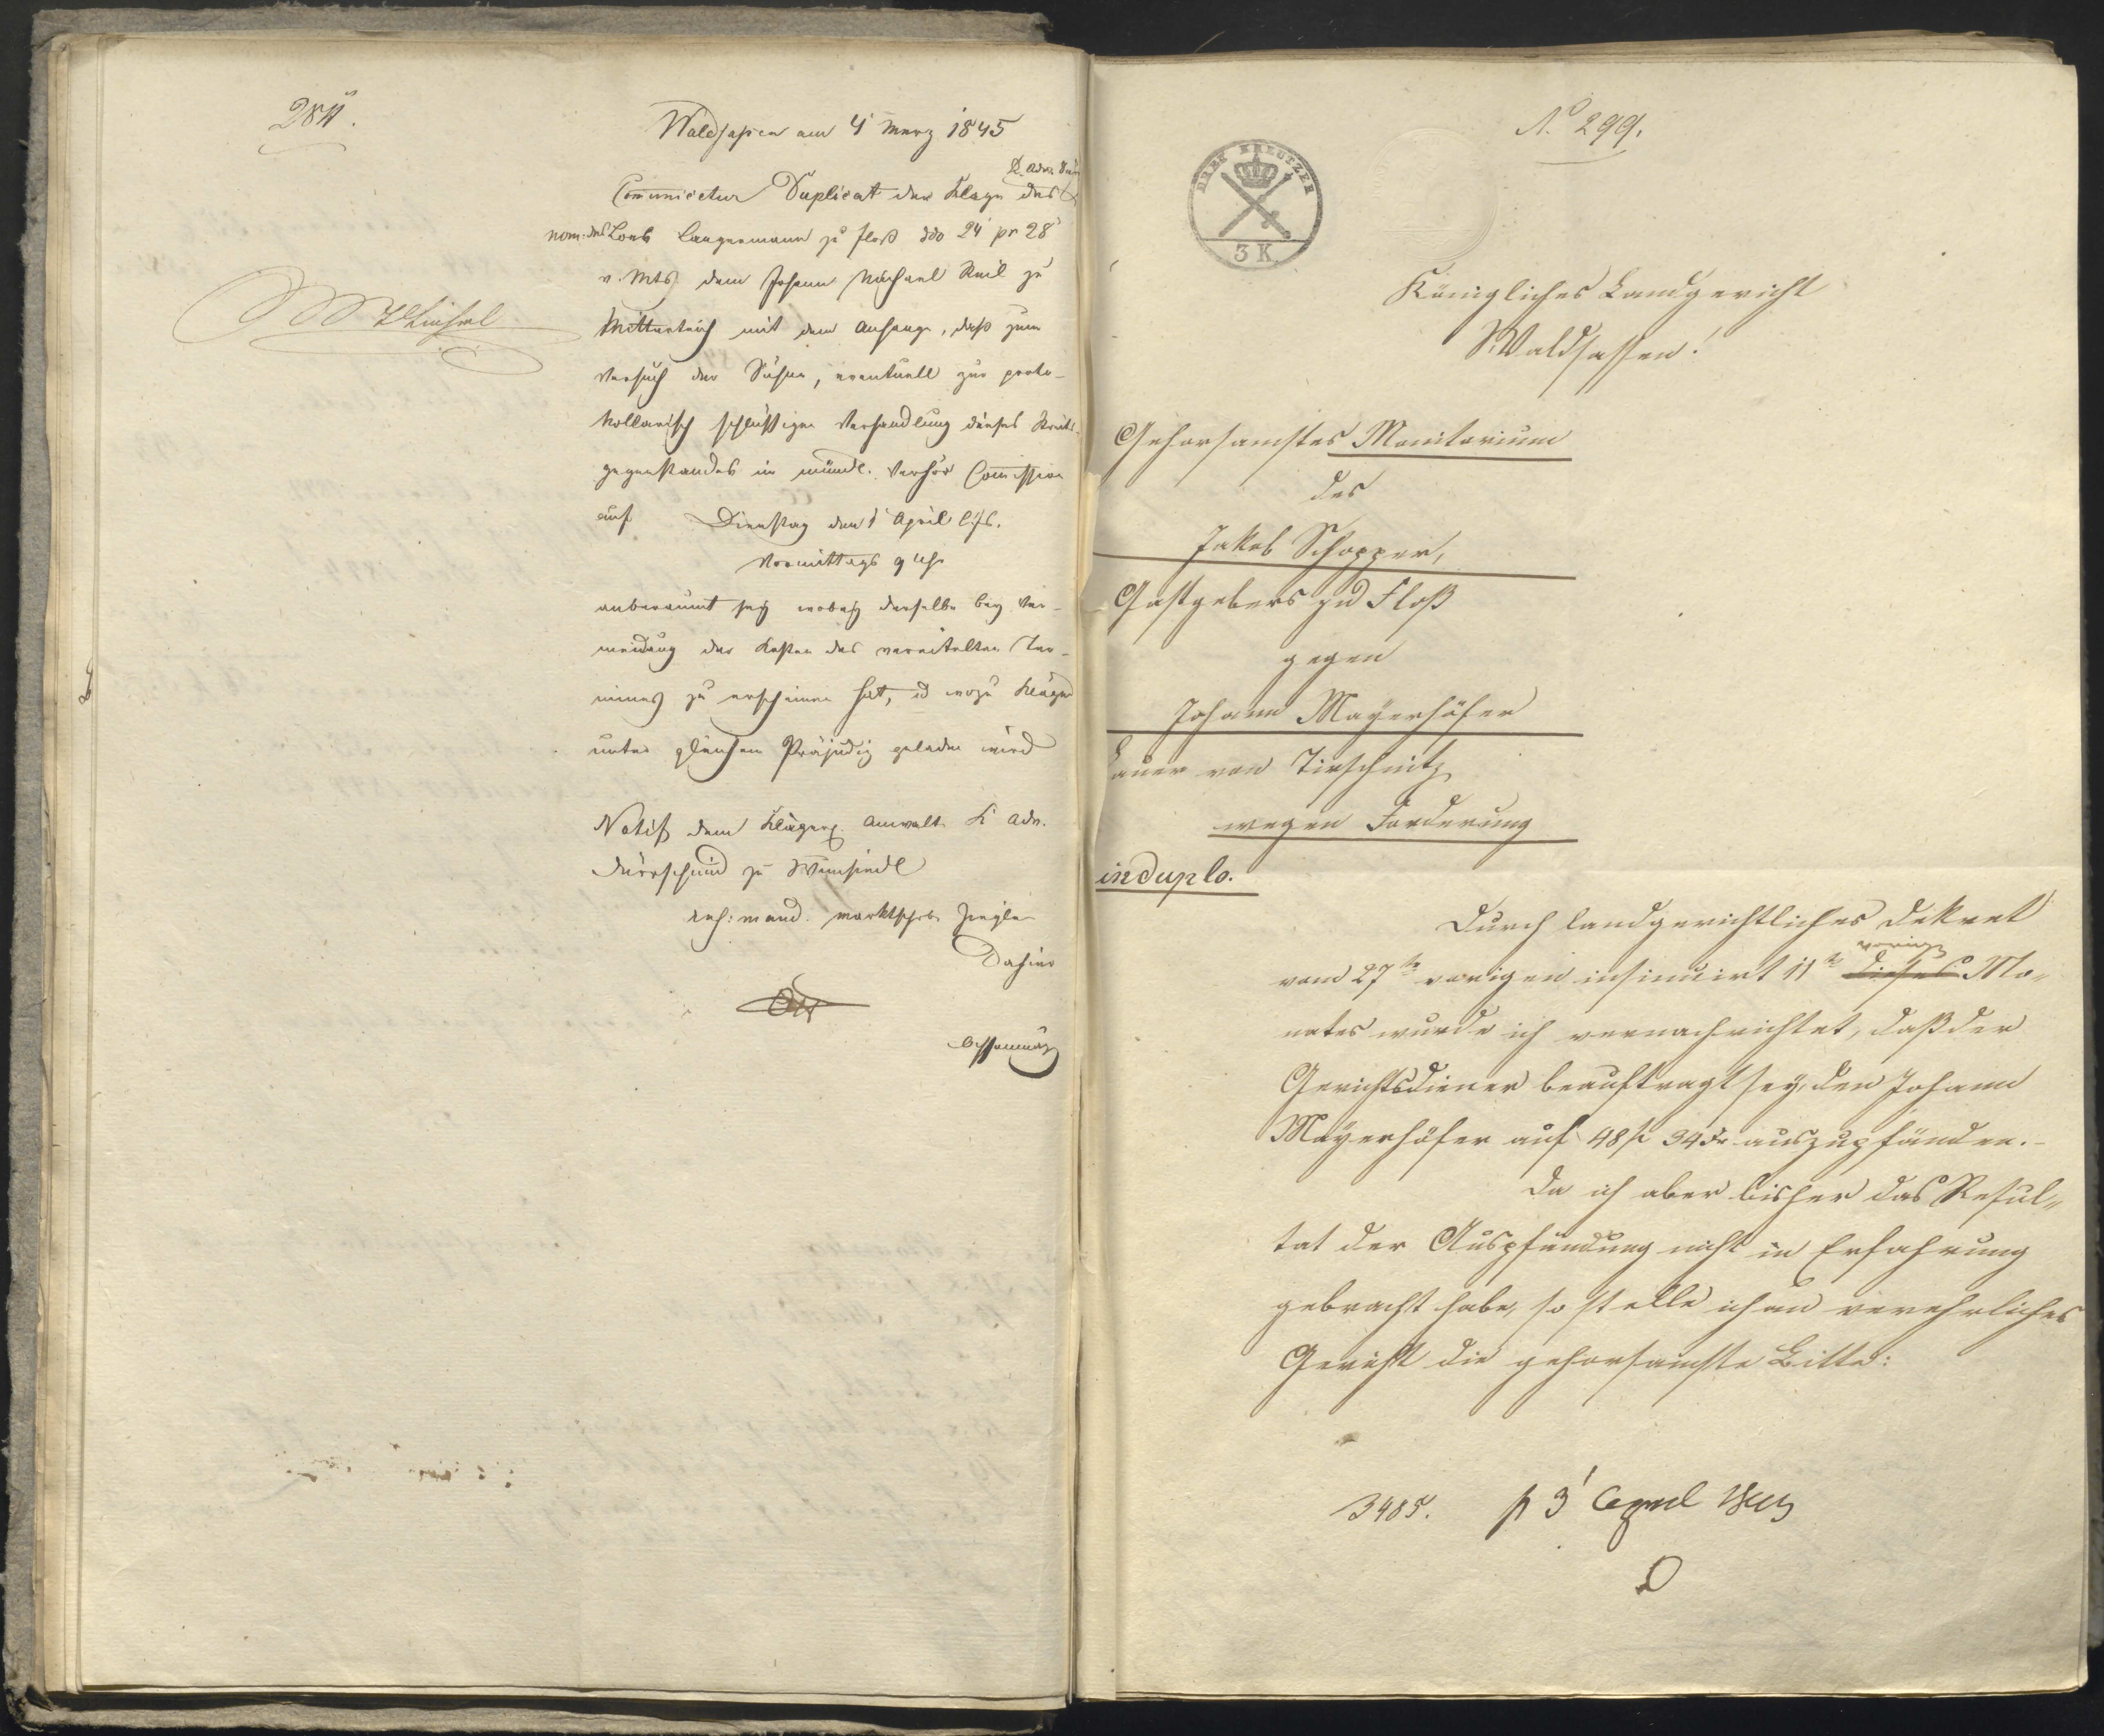 Waldsassen am 4 März 1845
Communicetur Duplicat der Klage des K. Adv. Dür
nom: des Loeb Langermann zu Floß ddo 24 pr 28
v. Mts dem Johann Michael Keil zu
Mitterteich mit dem Anhange, daß zum
Versuch der Sühne, eventuell zur proto-
kollarisch schlüssigen Verhandlung dieses Streits-
gegenstandes in mündl. Verhör Commission
auf Dienstag den 1 April l. Js.
Vormittags 9 Uhr
anberaumt sey wobey derselbe bey Ver-
meidung der Kosten des vereitelten Ter-
mines zu erscheinen hat, u wozu Kläger
unter gleichem Präjudiz geladen wird
Notif dem klägerisch. Anwalt K. Adv.
Dürrschmid zu Wunsiedl
Marktschrb. Ziegler
dahier
No 299.
DREI KREUTZER
3 K
Königliches Landgericht
Waldsassen!
Gehorsamstes Monitorium
des
Jakob Schopper,
Gastgebers zu Floß
gegen
Johann Mayerhöfer
Bauer von Tirschnitz
wegen Forderung
in duplo.
Durch landgerichtliches Dekret
vom 27ten vorigen insinuirt 11ten dieses vorigen Mo-
nates wurde ich vernachrichtet, daß der
Gerichtsdiener beauftragt sey, den Johann
Mayerhöfer auf 48 fl 34 kr auszupfänden.-
Da ich aber bisher das Resul-
tat der Auspfändung nicht in Erfahrung
gebracht habe, so stelle ich an verehrliches
Gericht die gehorsamste Bitte:
3485. pr 3 April 1845